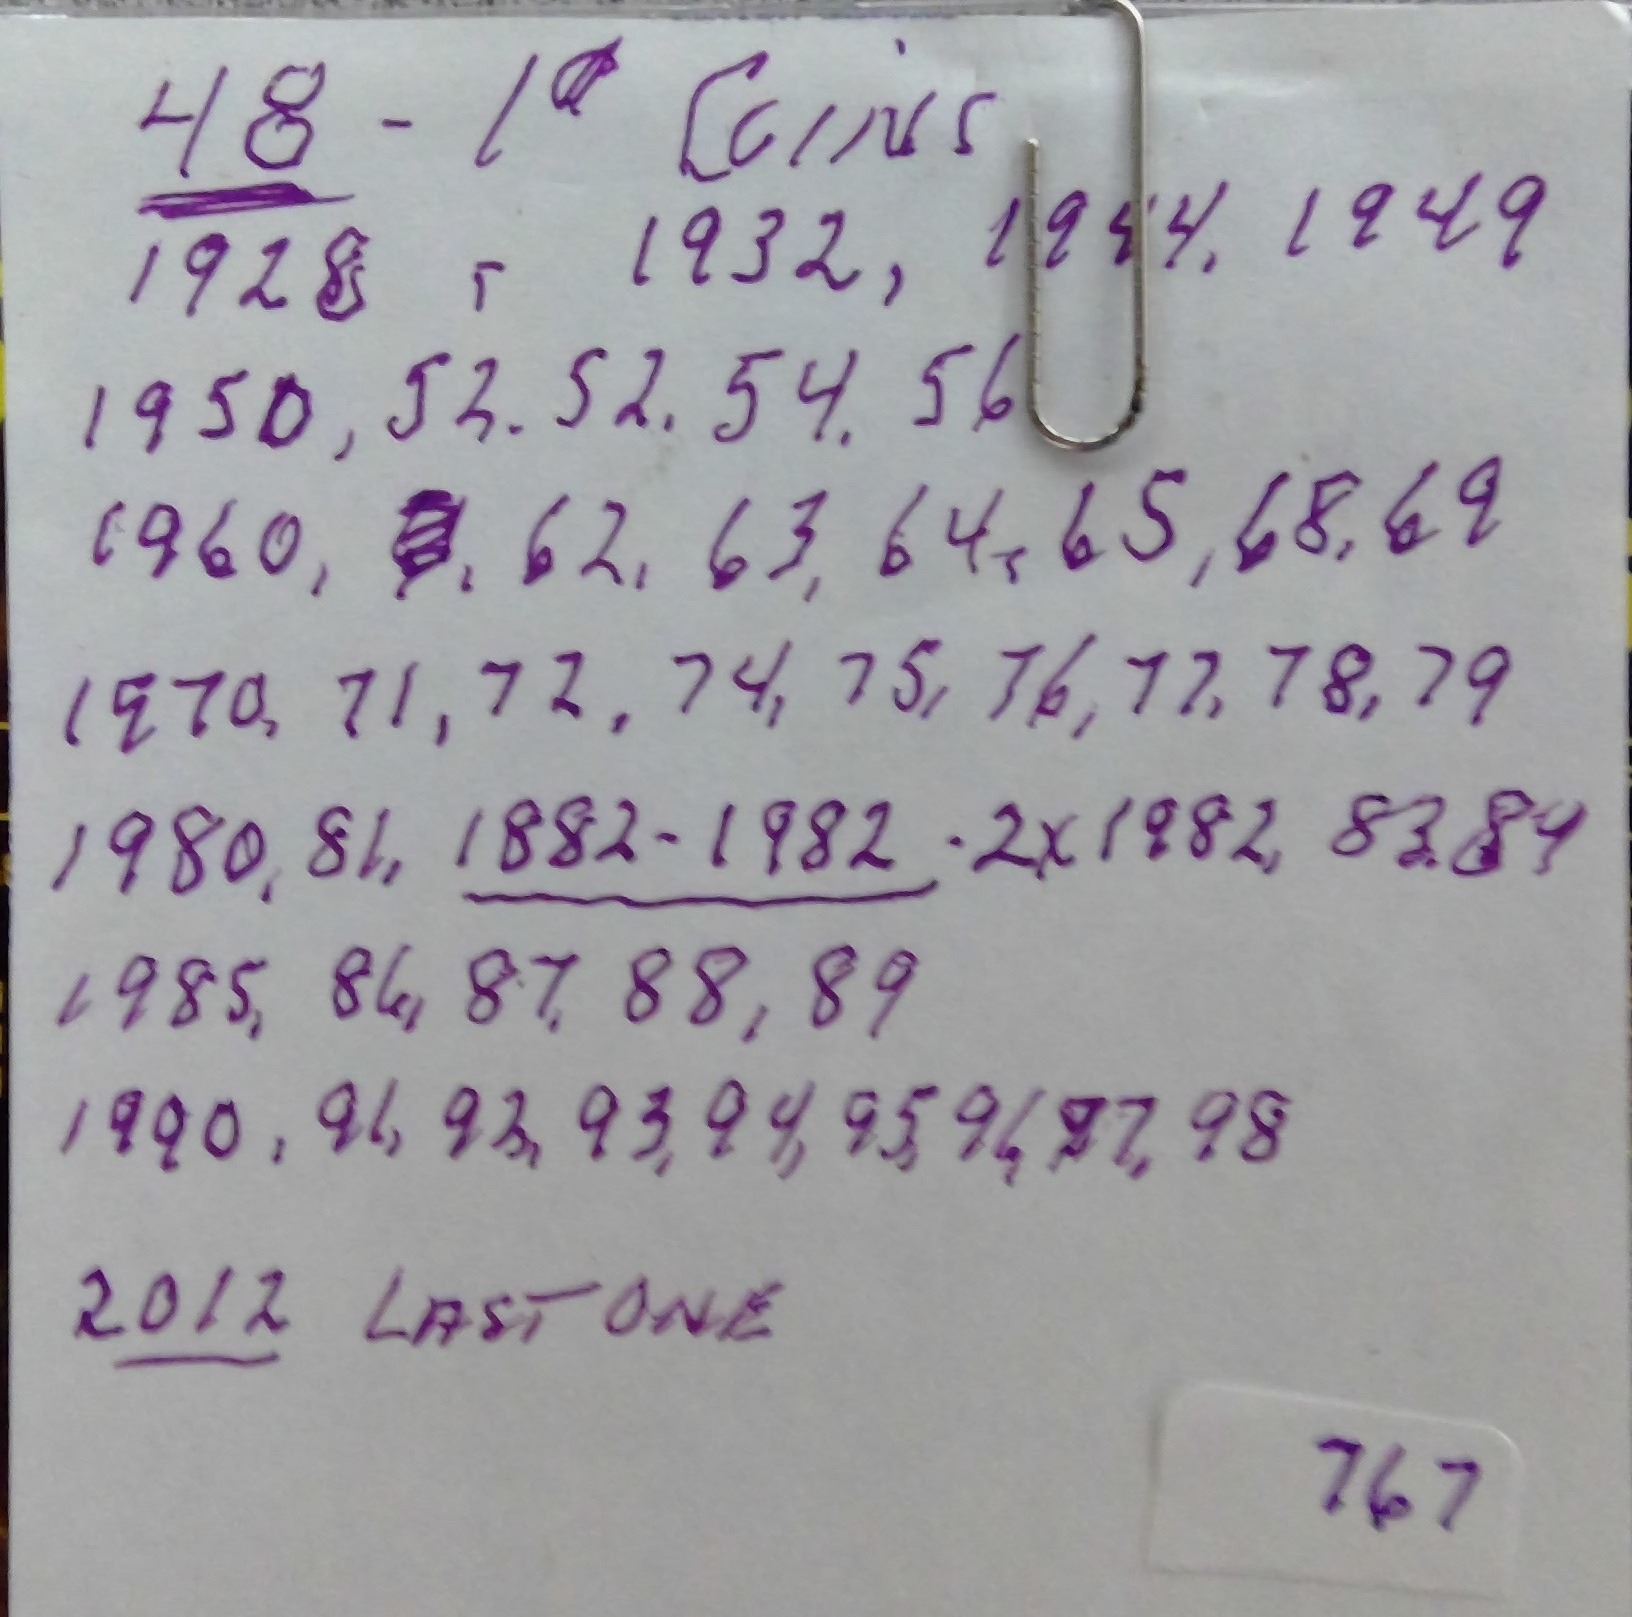 48 - 1¢ Coins
1928, 1932, 1944, 1949
1950, 52. 52. 54. 56
1960, 62, 63, 64, 65, 68, 69
1970, 71, 72, 74, 75, 76, 77, 78, 79
1980, 81, 1882-1982 . 2x1982, 83.84
1985, 86, 87, 88, 89
1990, 91, 92, 93, 94, 95, 96, 97, 98
2012 LAST ONE
767